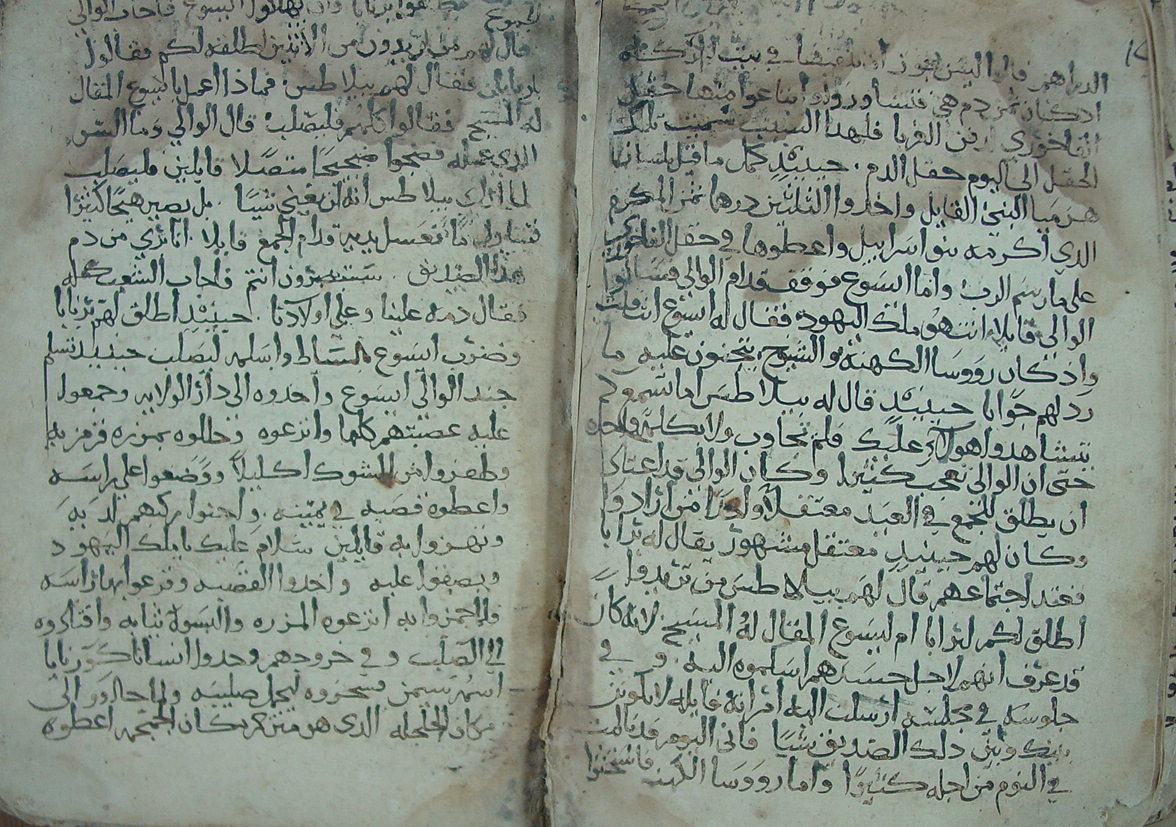 الدراهم قالوا ليس يجوز ان في بيت
اذ كان ثمن دم هي فتشاوروا وابتاعوا منها حقل
الفاخوري لدفن الغربا فلهذا السبب سميت تلك
الحقل الى اليوم حقل الدم . حينيذ كمل ما قيل بلسان
هرميا النبي القايل واخدوا الثلثين درهما ثمن المكرم
الذي اكرمه بنوا سراييل واعطوها في حقل الفاخوري
على ما رسم الرب واما ايسوع فوقف قدام الوالي فساله
الوالي قايلا انت هو ملك اليهود فقال له ايسوع انت قلت
واذ كان رووسا الكهنة والشيوخ يتجنون عليه ما
رد لهم جوابا حينيذ قال له بيلاطس اما تسمع
بتشاهدوا هولاي عليك فلم يجاوب ولا بكلمة واحدة
حتى ان الوالي تعجب كثيرا وكان الوالي قد اعتاد
ان يطلق للجمع في العيد معتقلا واحدا من ارادوا
وكان لهم حينيذ معتقل مشهور يقال له برابا
فعند اجتماعهم قال لهم بيلاطس من تريدوا
اطلق لكم لبرابا ام ليسوع المقال له المسيح لانه كان
قد عرف انهم لاجل حسدهم اسلموه اليه . وفي
جلوسه في مجلسه ارسلت اليه امراته قايله لا يكونن
بينك وبين ذلك الصديق شيا فاني اليوم قد تالمت
في النوم من اجله كثيرا واما رووسا الكهنة
الجموع ايسوع فاجاب الوالي
قال لهم من تريدون من الاثنين اطلقه لكم فقالوا
برنابان فقال لهم بيلاطس فماذا اعمل بايسوع المقال
له المسيح فقالوا كلهم فليصلب قال الوالي وما الشر
الذي عمله فضجوا صحيحا متصلا قايلين فليصلب
لما راي بيلاطس انه لن يغني شيا . بل يصير هيجا كثيرا
فتناول ما فغسل يديه قدام الجمع قايلا . انا بري من دم
هذا الصديق . ستبصرون انتم فاجاب الشعب كله
فقال دمه علينا وعلى اولادنا . حينيذ اطلق لهم برنابا
وضرب ايسوع بالسياط واسلمه ليصلب حينيذ تسلم
جند الوالي ايسوع واخدوه الى دار الولايه وجمعوا
عليه عصبتهم كلها وانزعوه وجللوه بمزره قرمزيه
وظفروا من الشوك اكليلا ووضعوا على راسه
واعطوه قصبه في يمينه واحنوا ركبهم لديه
وتهزوا به قايلين سلام عليك يا ملك اليهود
وبصقوا عليه واخدوا القصبه وقرعوا بها راسه
فلما هزوا به انزعوه المزره والبسوه ثيابه واقتادوه
الى الصلب وفي خروجهم وجدوا انسانا كورنايا
اسمه سيمن فسخروه ليحمل صليبه ولما جاوا الى
مكان الجلجله الذي هو متذكر مكان الجمجمه اعطوه